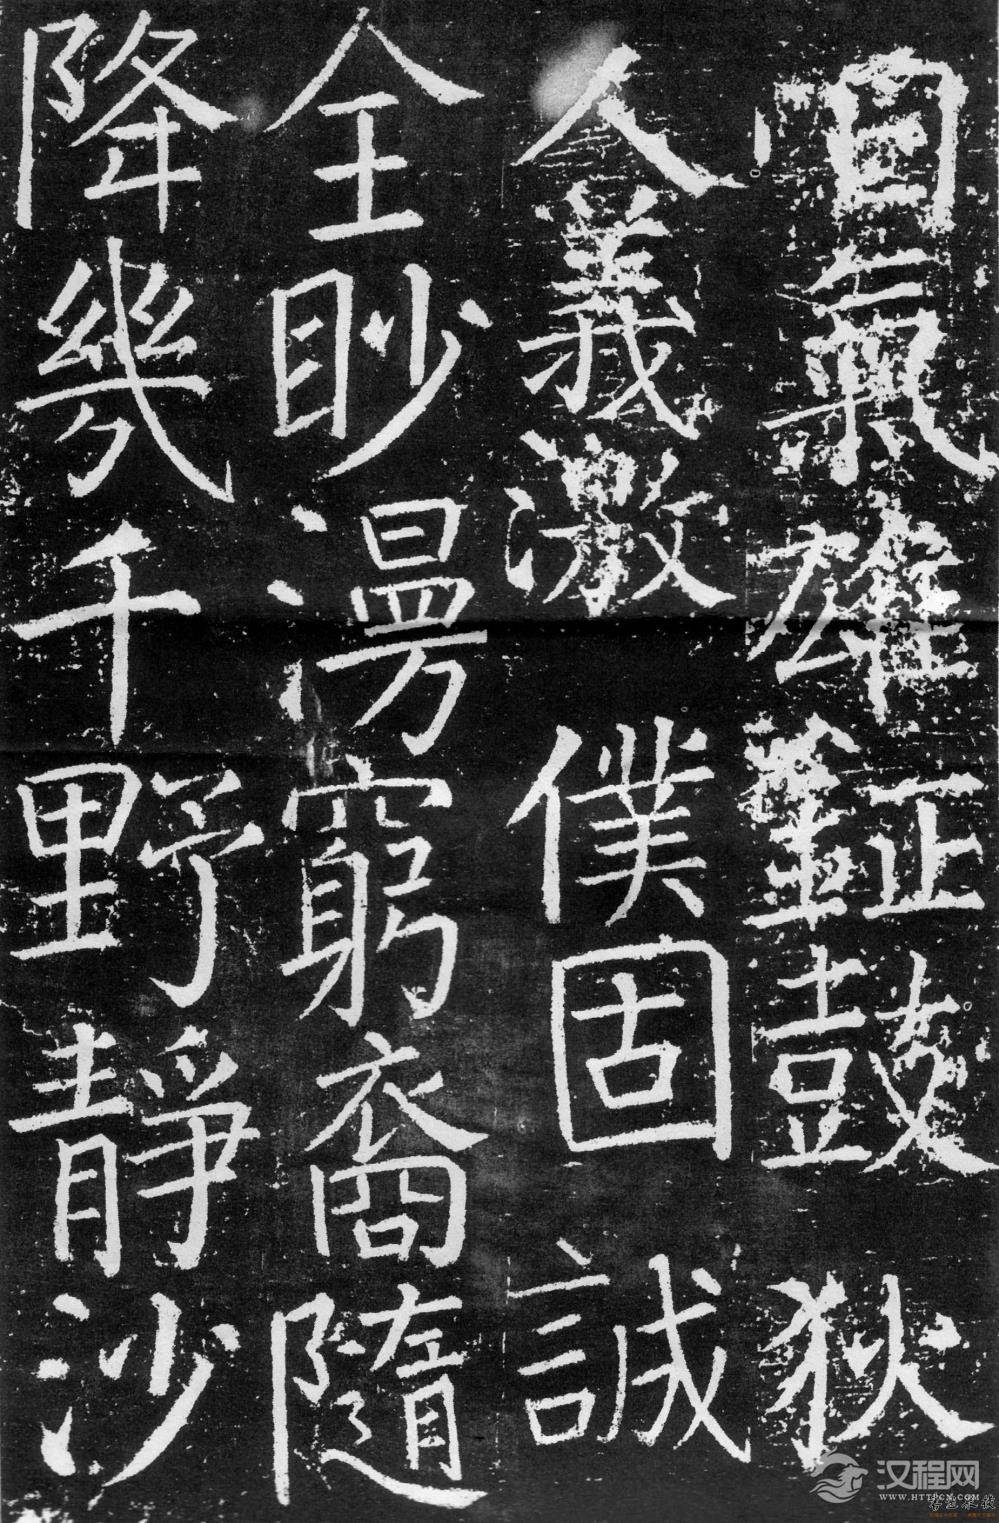 氣雄鉦鼓狄
人義激僕固誠
全眇漫窮裔隨
降幾千野靜沙
汉程网
WWW.HTTPCN.COM